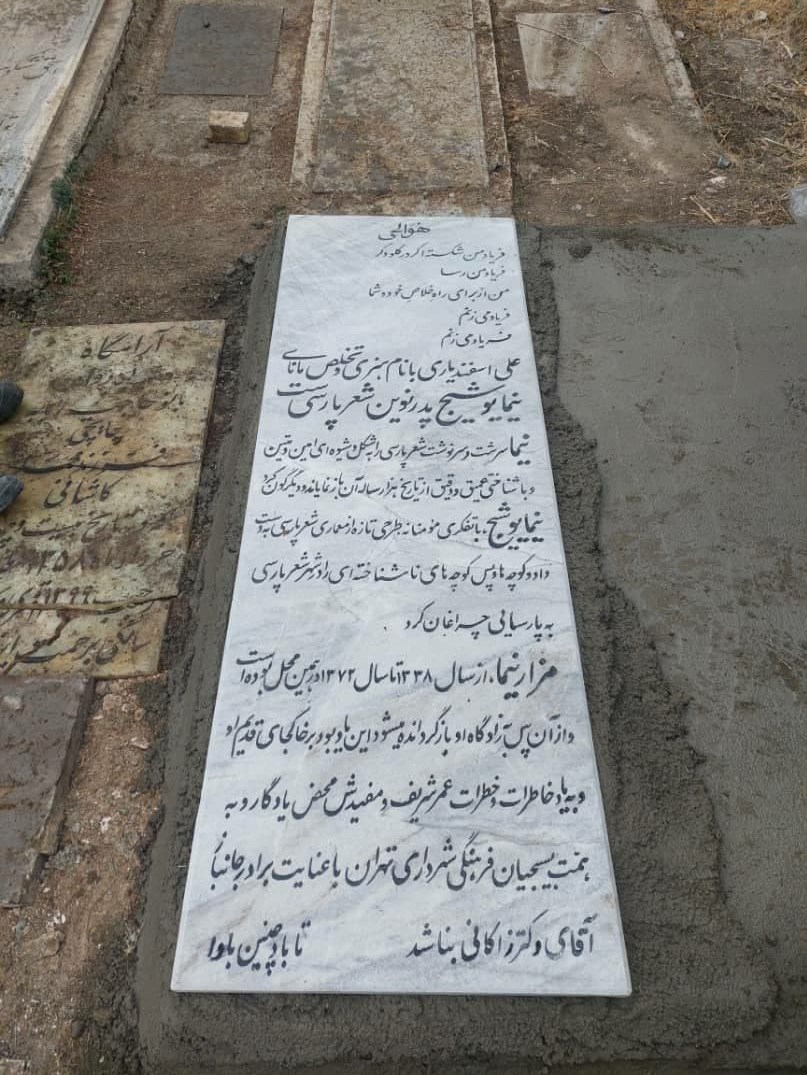 هوالحی
فریاد من شکسته اگر در گلو وگر
فریاد من رسا
من از برای راه خلاص خود و شما
فریاد می زنم
فریاد می زنم
علی اسفندیاری با نام هنری و تخلص مانای
نیما یوشیج پدر نوین شعر پارسی ست
نیما سرشت و سرنوشت شعر پارسی را به شکل و شیوه ای امین و متین
و با شناختی عمیق و دقیق از تاریخ هزار ساله آن باز نمایاند و دیگرگون کرد
نیما یوشیج، با تفکری مؤمنانه طرحی تازه از معماری شعر پارسی به دست
داد و کوچه ها و پس کوچه های ناشناخته ای را در شهر شعر پارسی
به پارسایی چراغان کرد.
مزار نیما، از سال ۱۳۳۸ تا سال ۱۳۷۲ در همین محل بوده است
و از آن پس به زادگاه او بازگردانده میشود این یادبود بر خاکجای قدیم او
و به یاد خاطرات و خطرات عمر شریف و مفیدش محض یادگار و به
همت بسیجیان فرهنگی شهرداری تهران با عنایت برادر جانباز
آقای دکتر زاکانی بنا شد تا باد چنین بادا
آرامگاه
چایچی
کاشانی